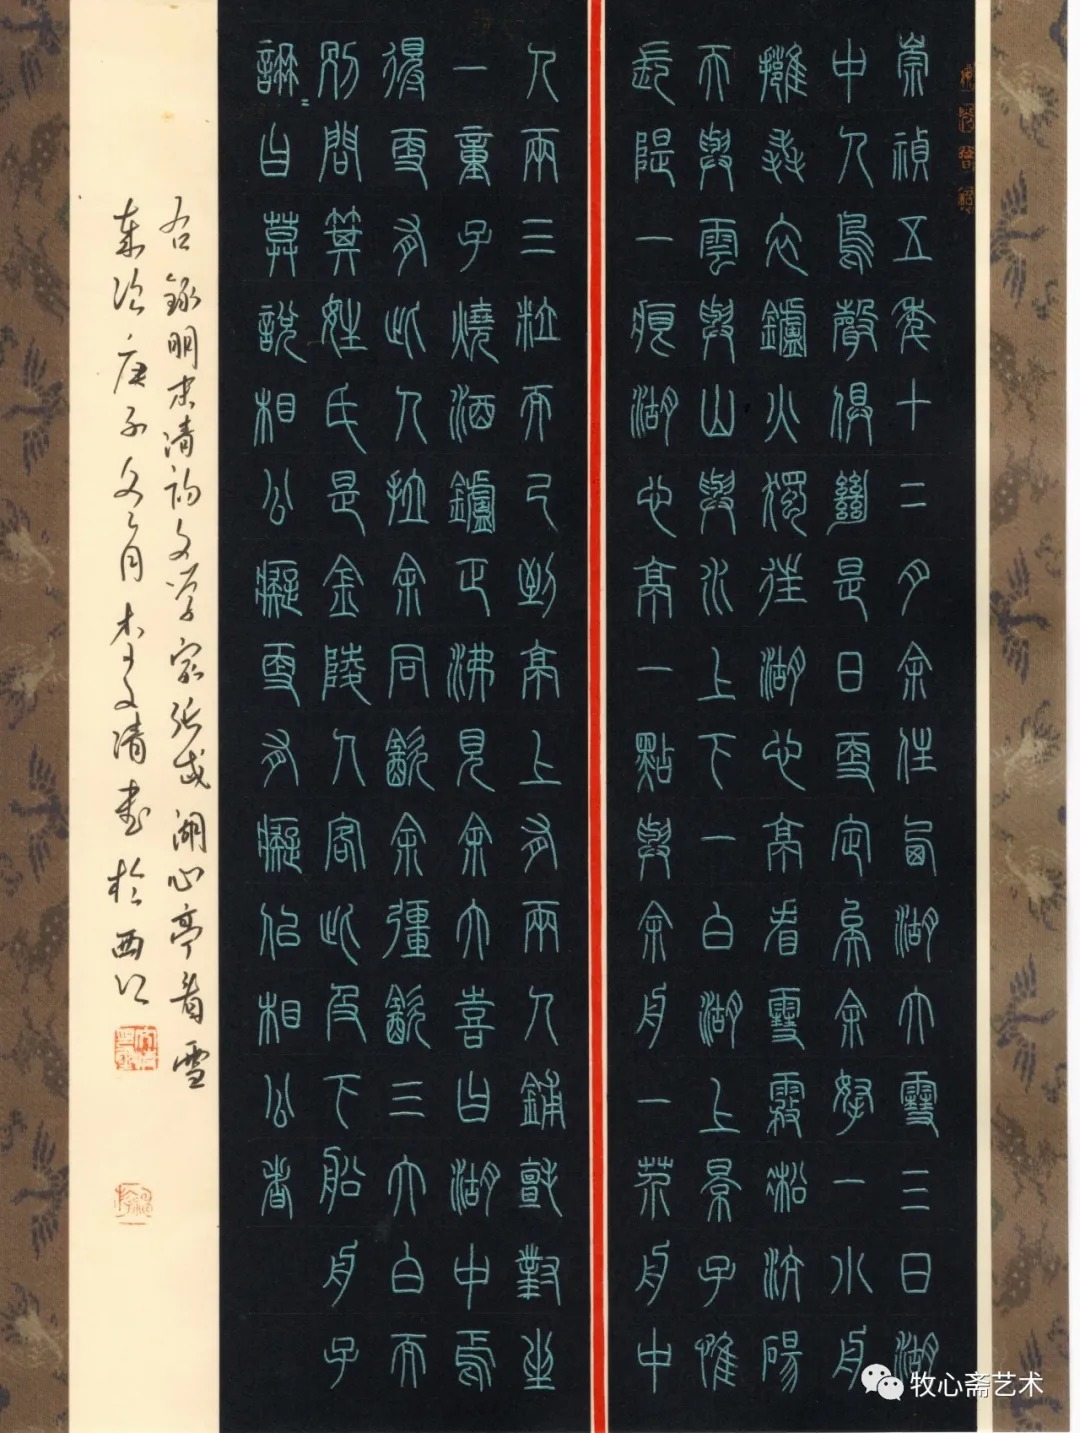 崇禎五年十二月余住西湖大雪三日湖
中人鳥聲俱絕是日更定矣余拏一小舟
擁毳衣鑪火獨往湖心亭看雪霧凇沆碭
天與雲與山與水上下一白湖上景子惟
長隄一痕湖心亭一點與余舟一芥舟中
人兩三粒而已到亭上有兩人鋪氈對坐
一童子燒酒鑪正沸見余大喜曰湖中焉
得更有此人拉余同飲余彊飲三大白而
別問其姓氏是金陵人客此及下船舟子
諵〻曰莫說相公癡更有癡似相公者
右錄明末清初文學家張岱湖心亭看雪
歲次庚子冬月李文清書於西江
牧心斋艺术